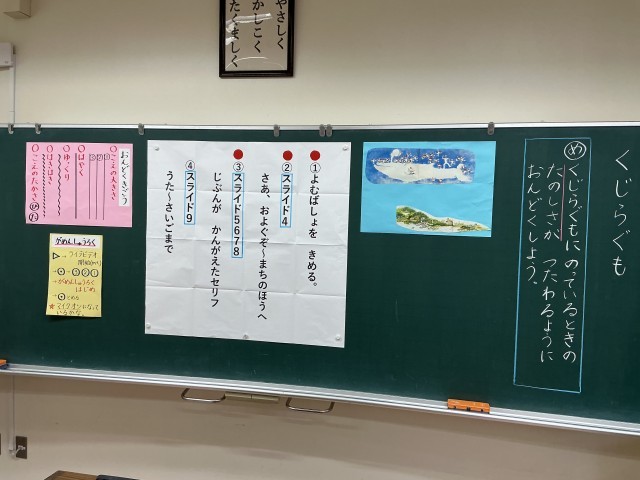 やさしく
かしこく
たくましく
くじらぐも
め
くじらぐもに のっているときの
たのしさが つたわるように
おんどくしよう。
①よむばしょを きめる。
②スライド4
さあ、およぐぞ~まちのほうへ
③スライド5678
じぶんが かんがえたセリフ
④スライド9
うた~さいごまで
おんどくきごう
こえの大きさ
③②①
はやく
ゆっくり
はきはき
こえのたかさ
がめんしゅうろく
ライブビデオ
がめんしゅうろく
はじめ
とめる
★マイクオンになって
いるかな。